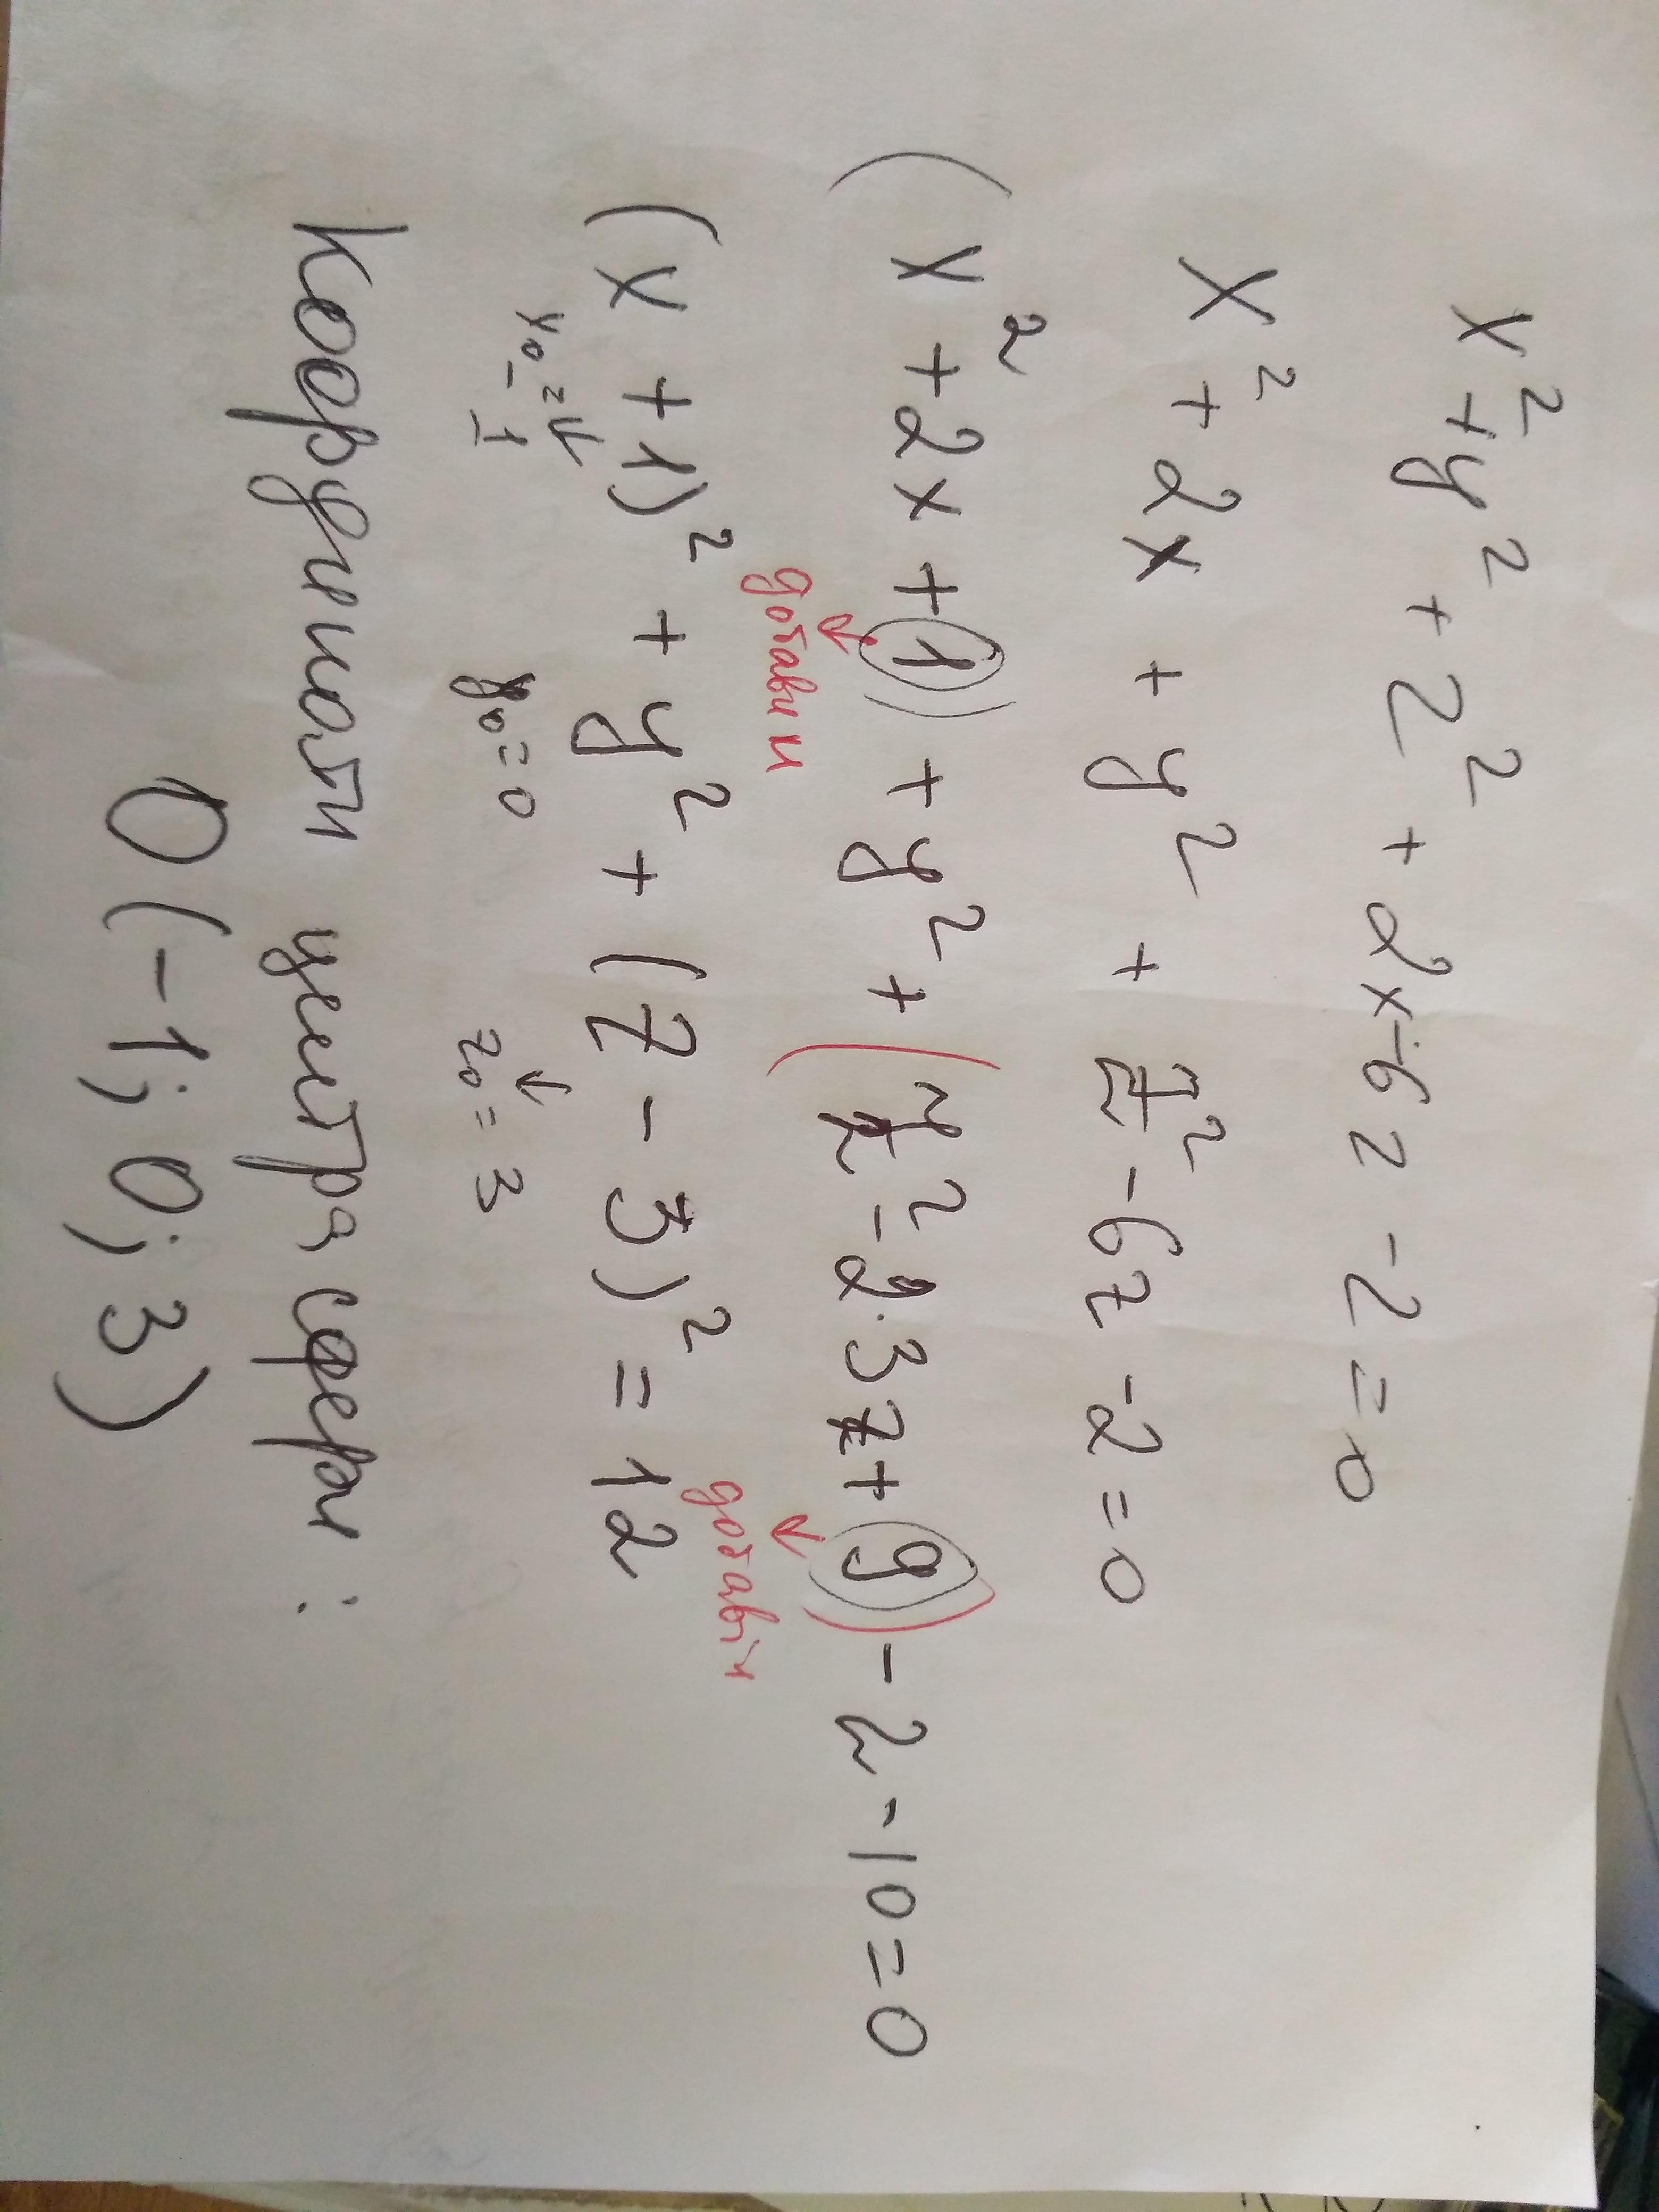 x² + y² + z² + 2x - 6z - 2 = 0
x² + 2x + y² + z² - 6z - 2 = 0
(x² + 2x + 1) + y² + (z² - 2·3z + 9) - 2 - 10 = 0
добави добавіи
(x + 1)² + y² + (z - 3)² = 12
x₀ = -1 y₀ = 0 z₀ = 3
Координати центра сфери :
O (-1; 0; 3)